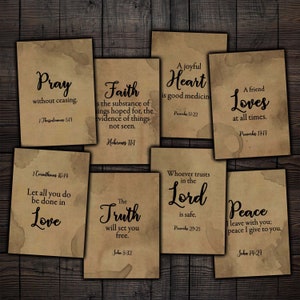 Pray
without ceasing.
1 Thessalonians 5:17
Faith
is the substance of
things hoped for, the
evidence of things
not seen.
Hebrews 11:1
A joyful
Heart
is good medicine
Proverbs 17:22
A friend
Loves
at all times.
Proverbs 17:17
1 Corinthians 16:14
Let all you do
be done in
Love
The
Truth
will set you
free.
John 8:32
Whoever trusts
in the
Lord
is safe.
Proverbs 29:25
Peace
I leave with you;
peace I give to you.
John 14:27